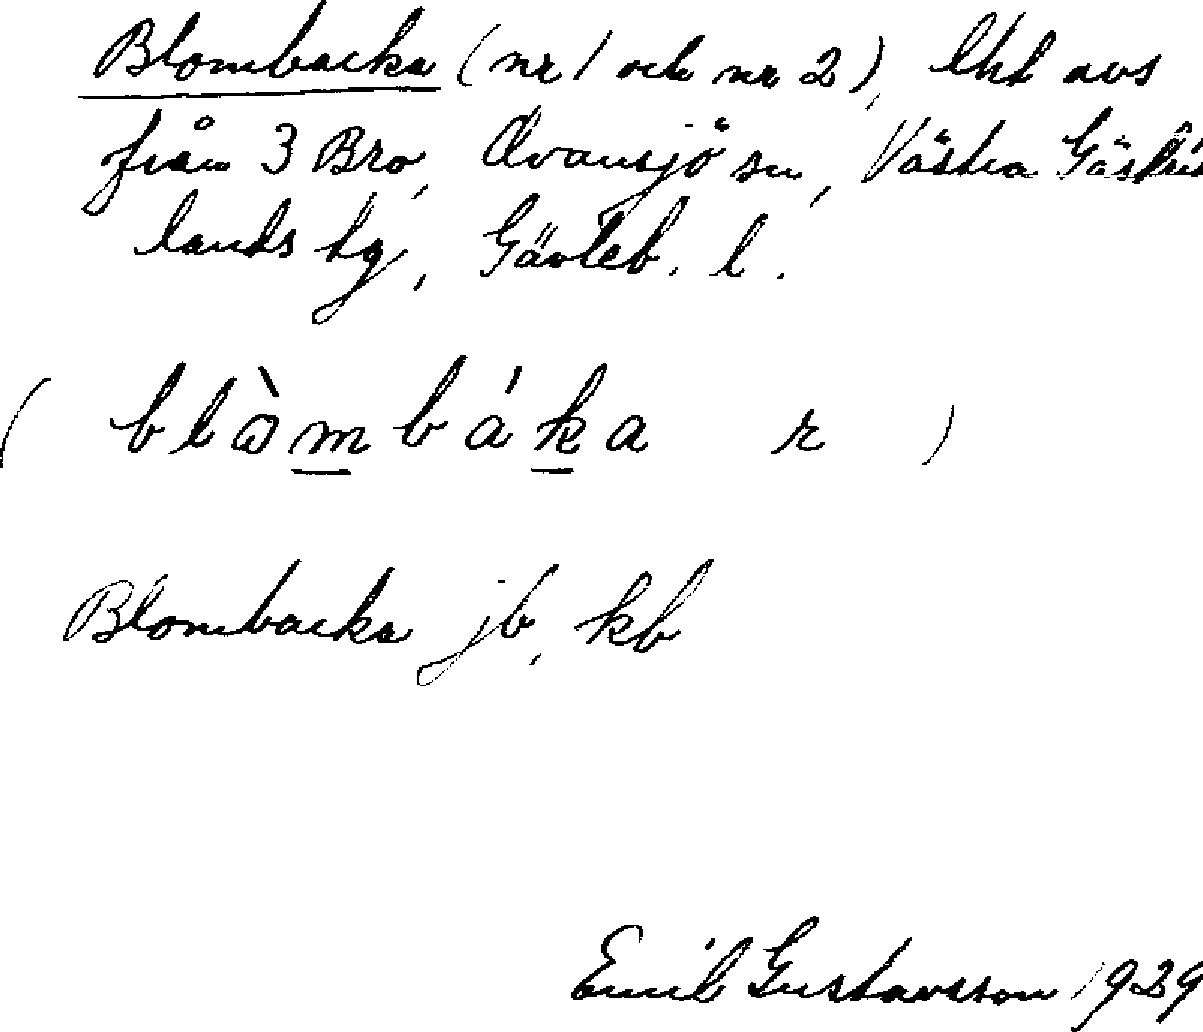 Blombacka (nr 1 och nr 2), lht avs
från 3 Bro, Ovansjö sn, Västra Gästrik
lands tg, Gävleb. l.
( blɷ̀mbáka r )
Blombacka jb, kb
Emil Gustavsson 1929